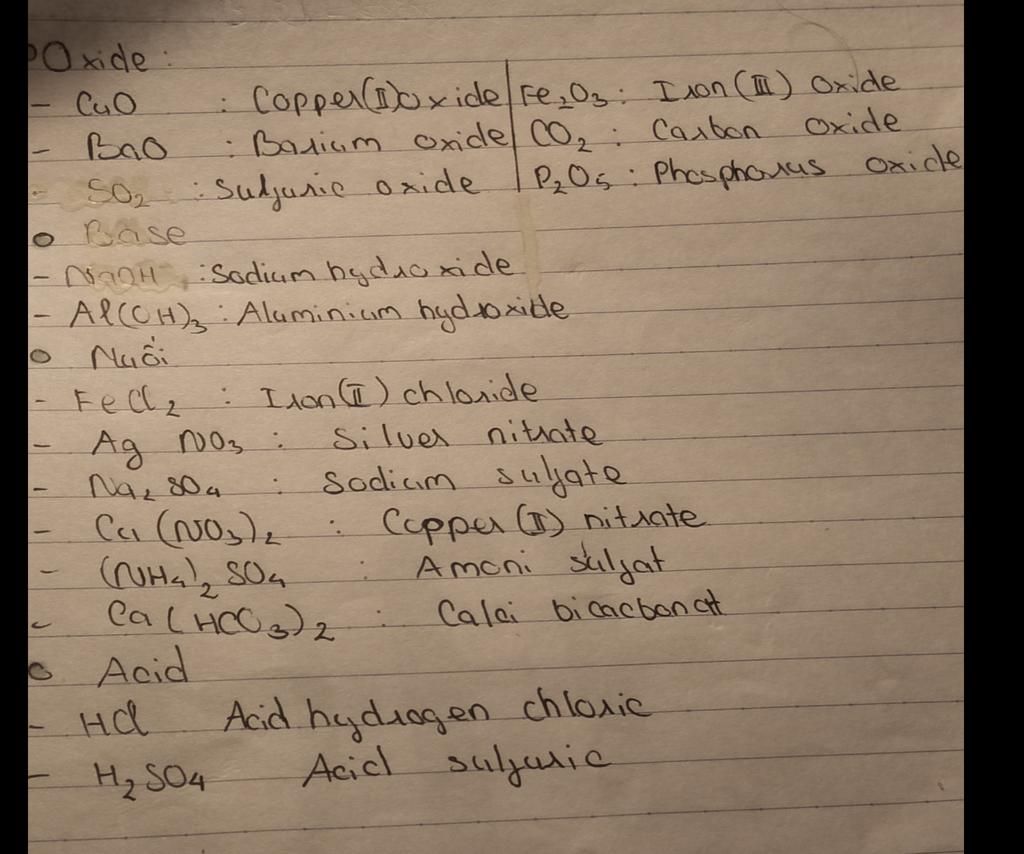 Oxide :
- CuO : Copper(II) oxide | Fe₂O₃ : Iron (III) Oxide
- BaO : Barium oxide | CO₂ : Carbon Oxide
- SO₂ : Sulfuric oxide | P₂O₅ : Phosphorus oxide
o Base
- NaOH : Sodium hydroxide
- Al(OH)₃ : Aluminium hydroxide
o Muối
- FeCl₂ : Iron(II) chloride
- Ag NO₃ : Silver nitrate
- Na₂ SO₄ : Sodium sulfate
- Cu (NO₃)₂ : Copper (II) nitrate
- (NH₄)₂ SO₄ : Amoni sulfat
- Ca (HCO₃)₂ : Calci bicacbonat
o Acid
- HCl Acid hydrogen chloric
- H₂SO₄ Acid sulfuric